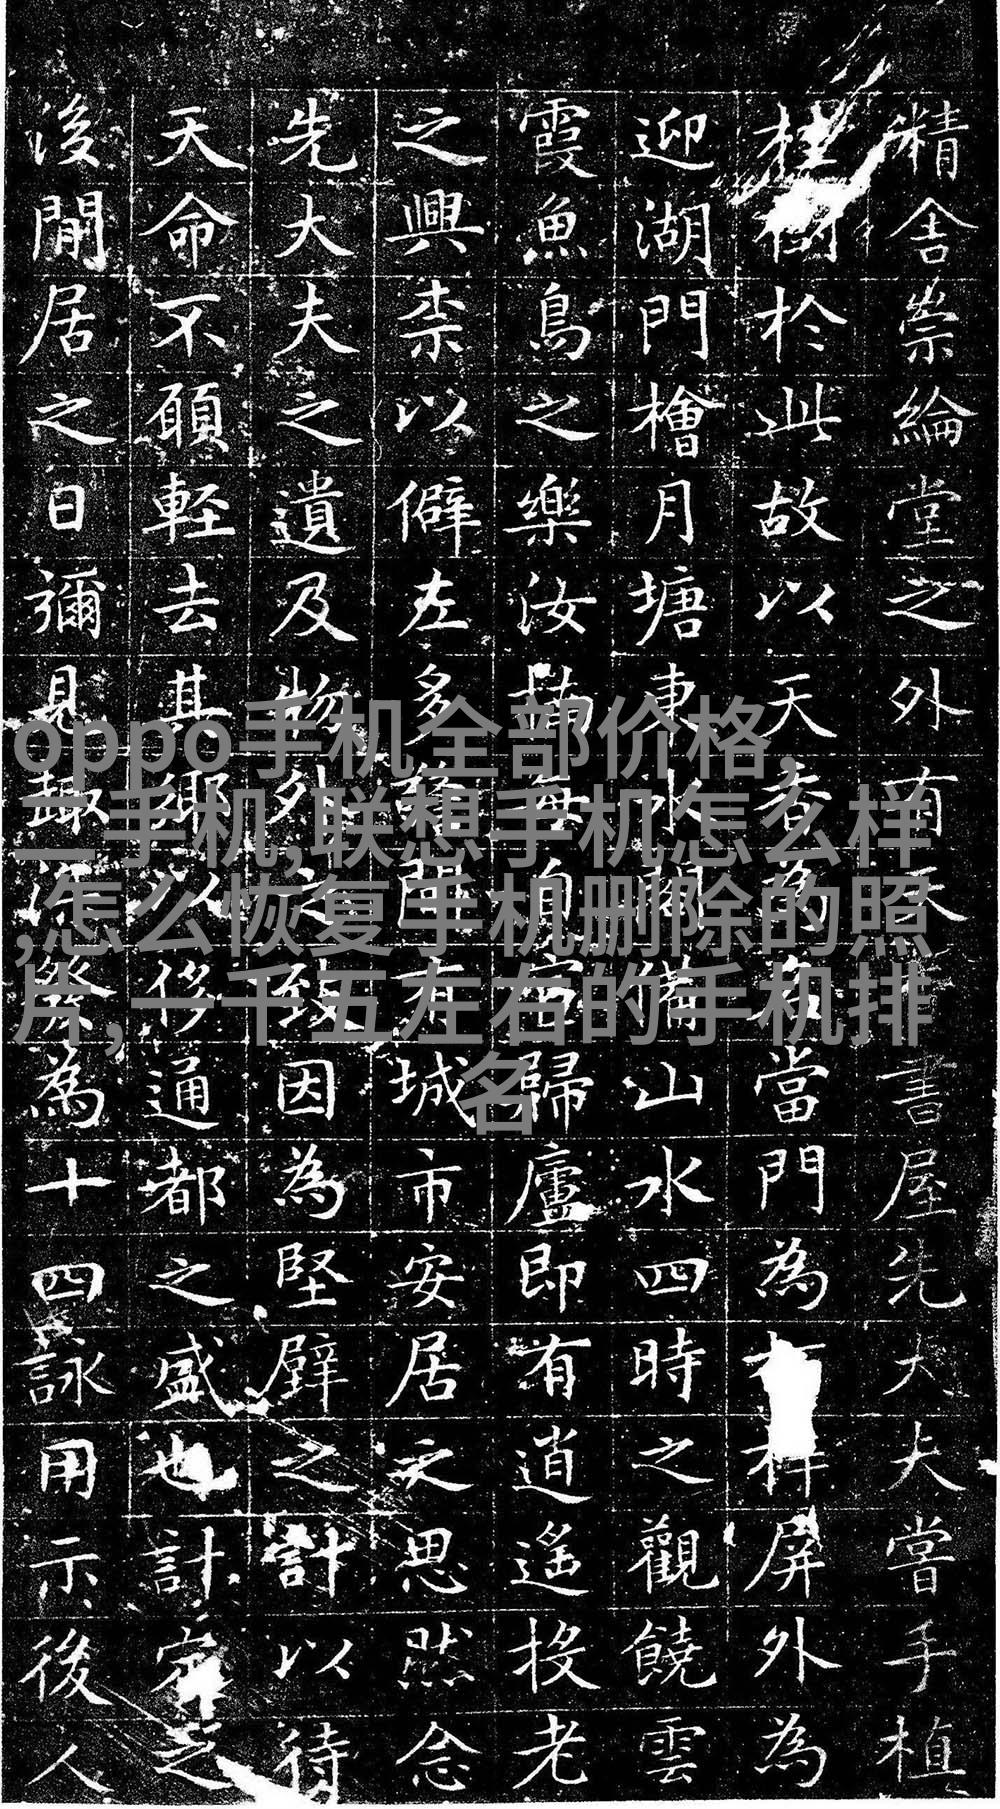 精舍崇綸堂之外有天書屋先大夫嘗手植
桂樹於此故以天香為名當門為屏外為
迎湖門檜月塘東水關備山水四時之觀饒雲
霞魚鳥之樂汝楠每自宦歸廬即有逍遙投老
之興柰以僻左多警閒有城市安居之思然念
先大夫之遺及物外之致因為堅壁之計以待
天命不願輕去其鄉以侈通都之盛也計定之
後閒居之日彌見趣深發為十四詠用示後人
oppo手机全部价格,
二手机,联想手机怎么样
,怎么恢复手机删除的照
片,一千五左右的手机排
名